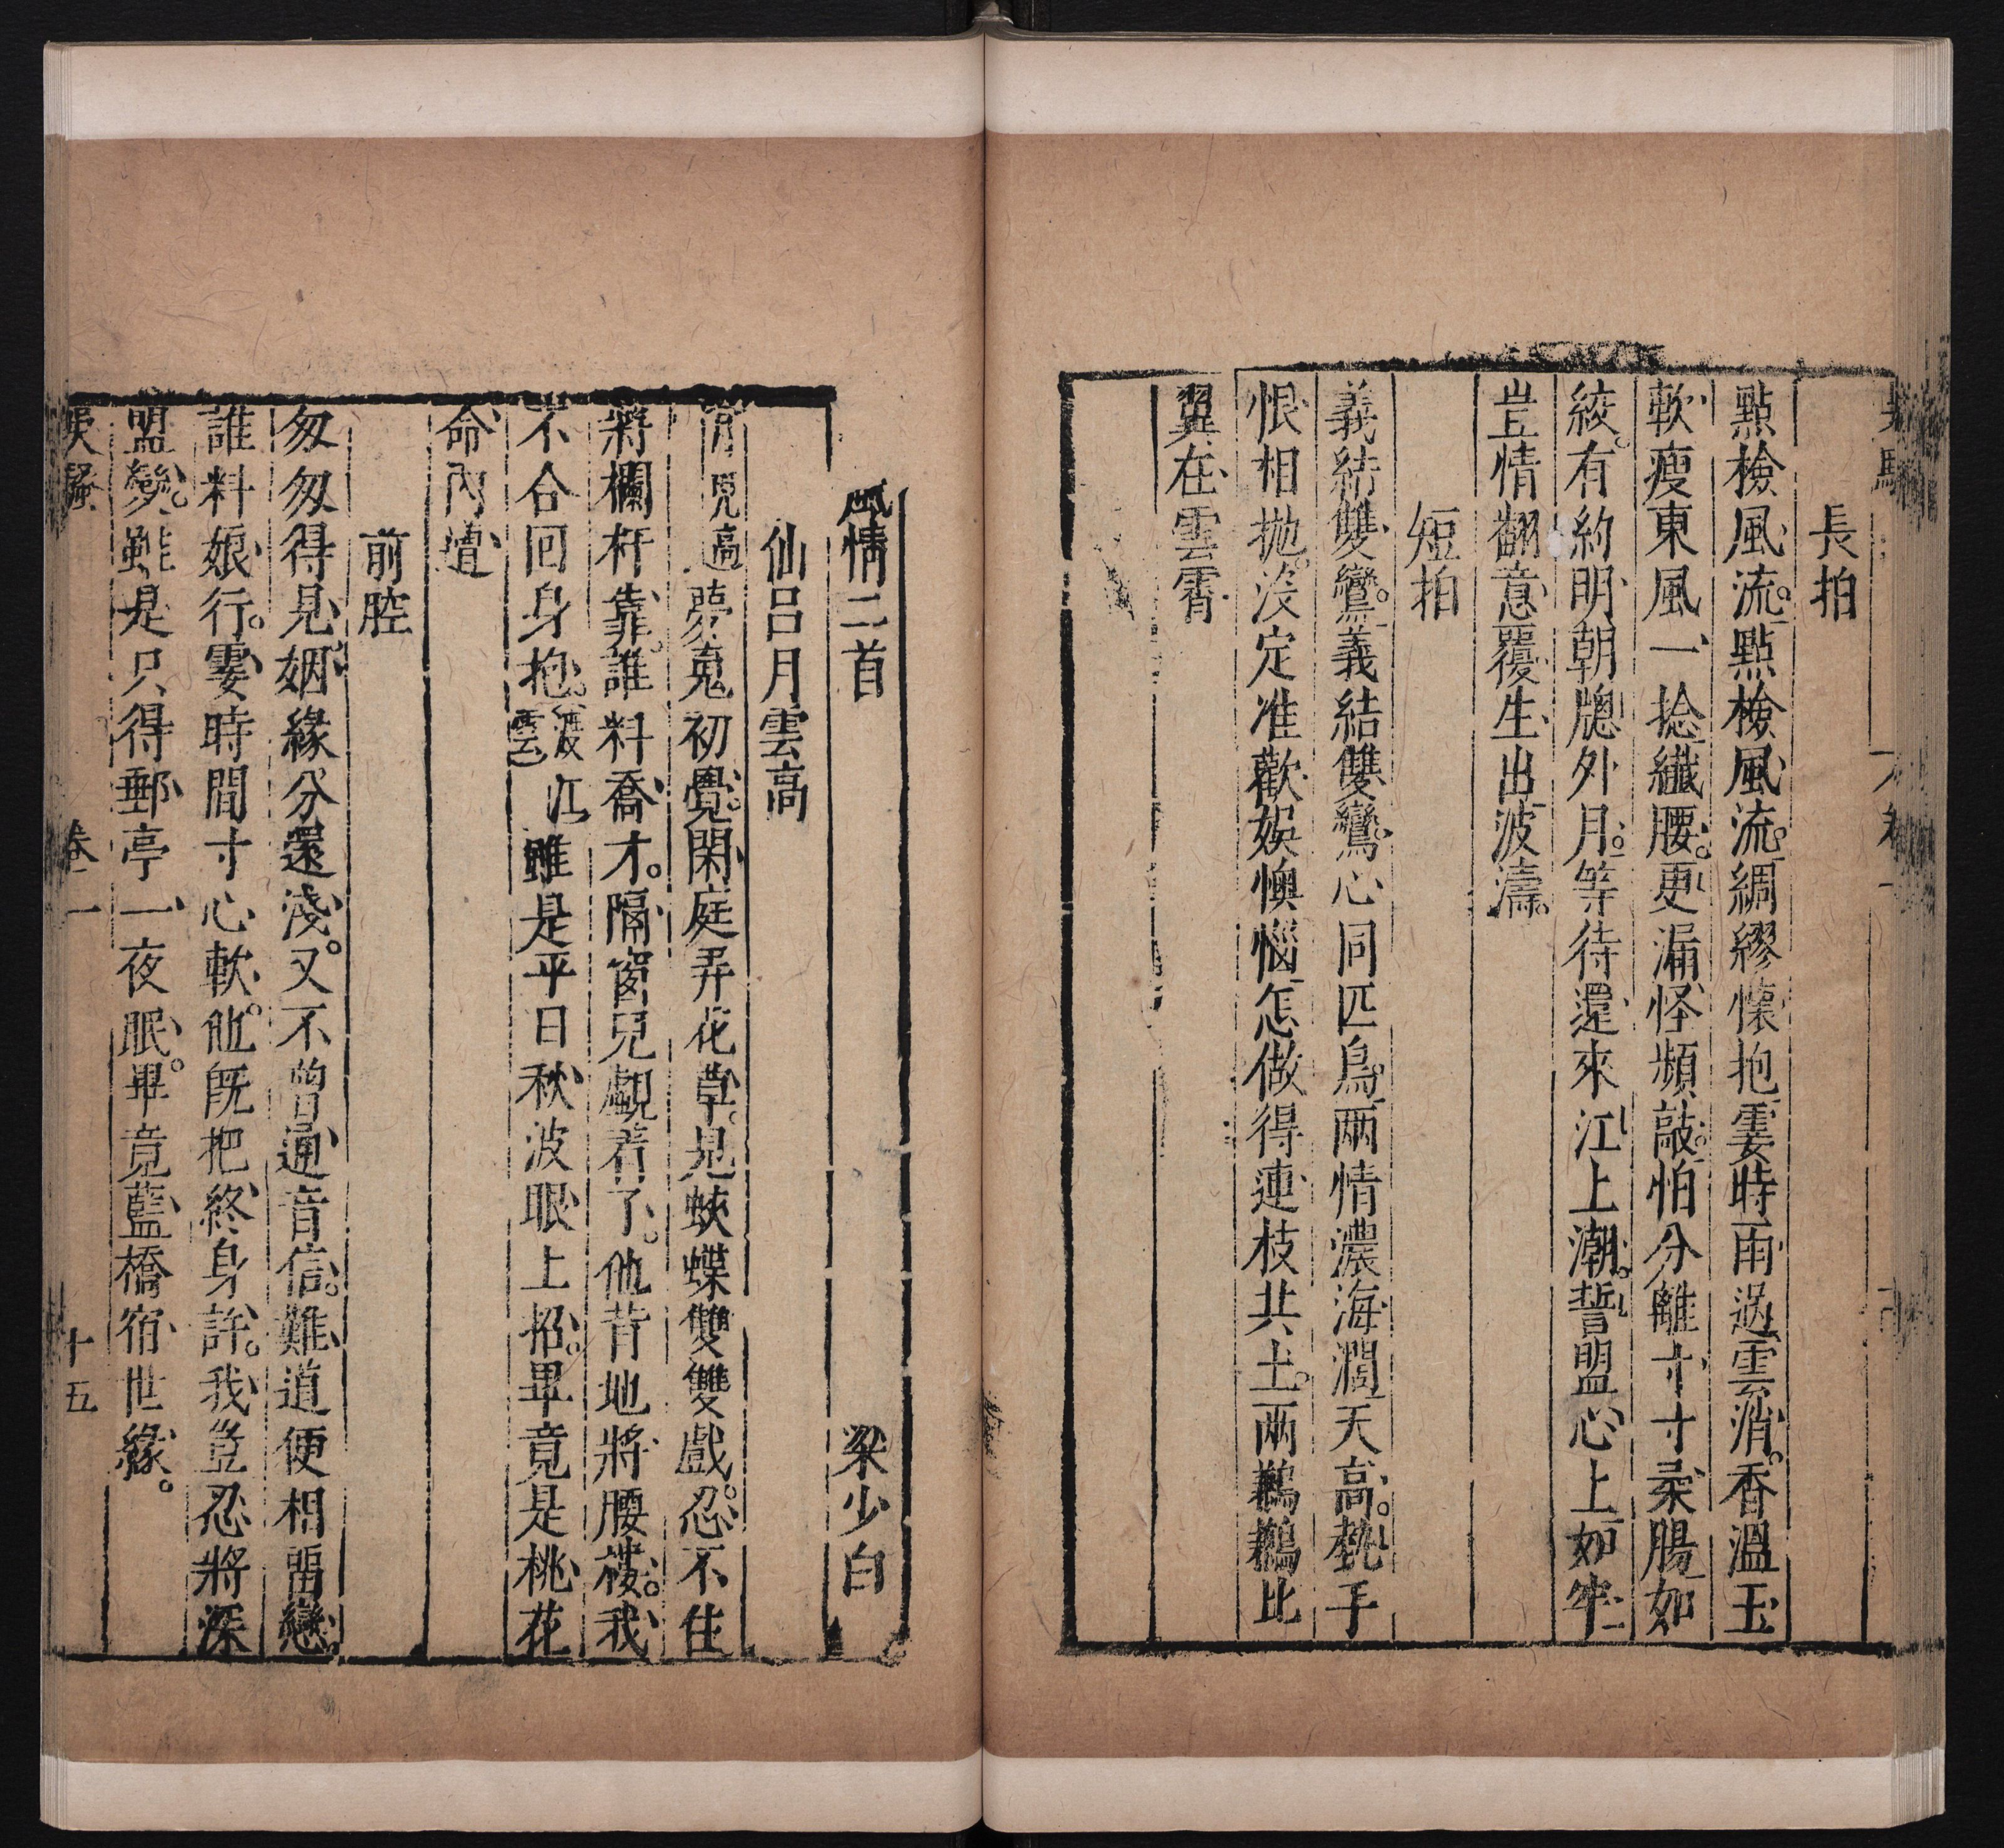 長拍
點檢風流點檢風流綢繆懷抱霎時雨過雲消香溫玉
軟瘦東風一捻纖腰更漏怪頻敲怕分離寸寸柔腸如
絞有約明朝牎外月等待還來江上潮誓盟心上如牢
豈情翻意覆生出波濤
短拍
義結雙鸞義結雙鸞心同匹鳥兩情濃海濶天高執手
恨相拋沒定准歡娛懊惱怎做得連枝共土兩鶼鶼比
翼在雲霄
風情二首 梁少白
仙呂月雲高
夢䰟初覺閑庭弄花草見蛺蝶雙雙戲忍不住
將欄杆靠誰料喬才隔窗兒覷着了他背地將腰摟我
不合回身抱渡江雲雖是平日秋波眼上招畢竟是桃花
命內遭
前腔
匆匆得見姻緣分還淺又不曾通音信難道便相留戀
誰料娘行霎時間寸心軟他既把終身許我豈忍將深
盟變雖是只得郵亭一夜眠畢竟藍橋宿世緣
卷一
十五